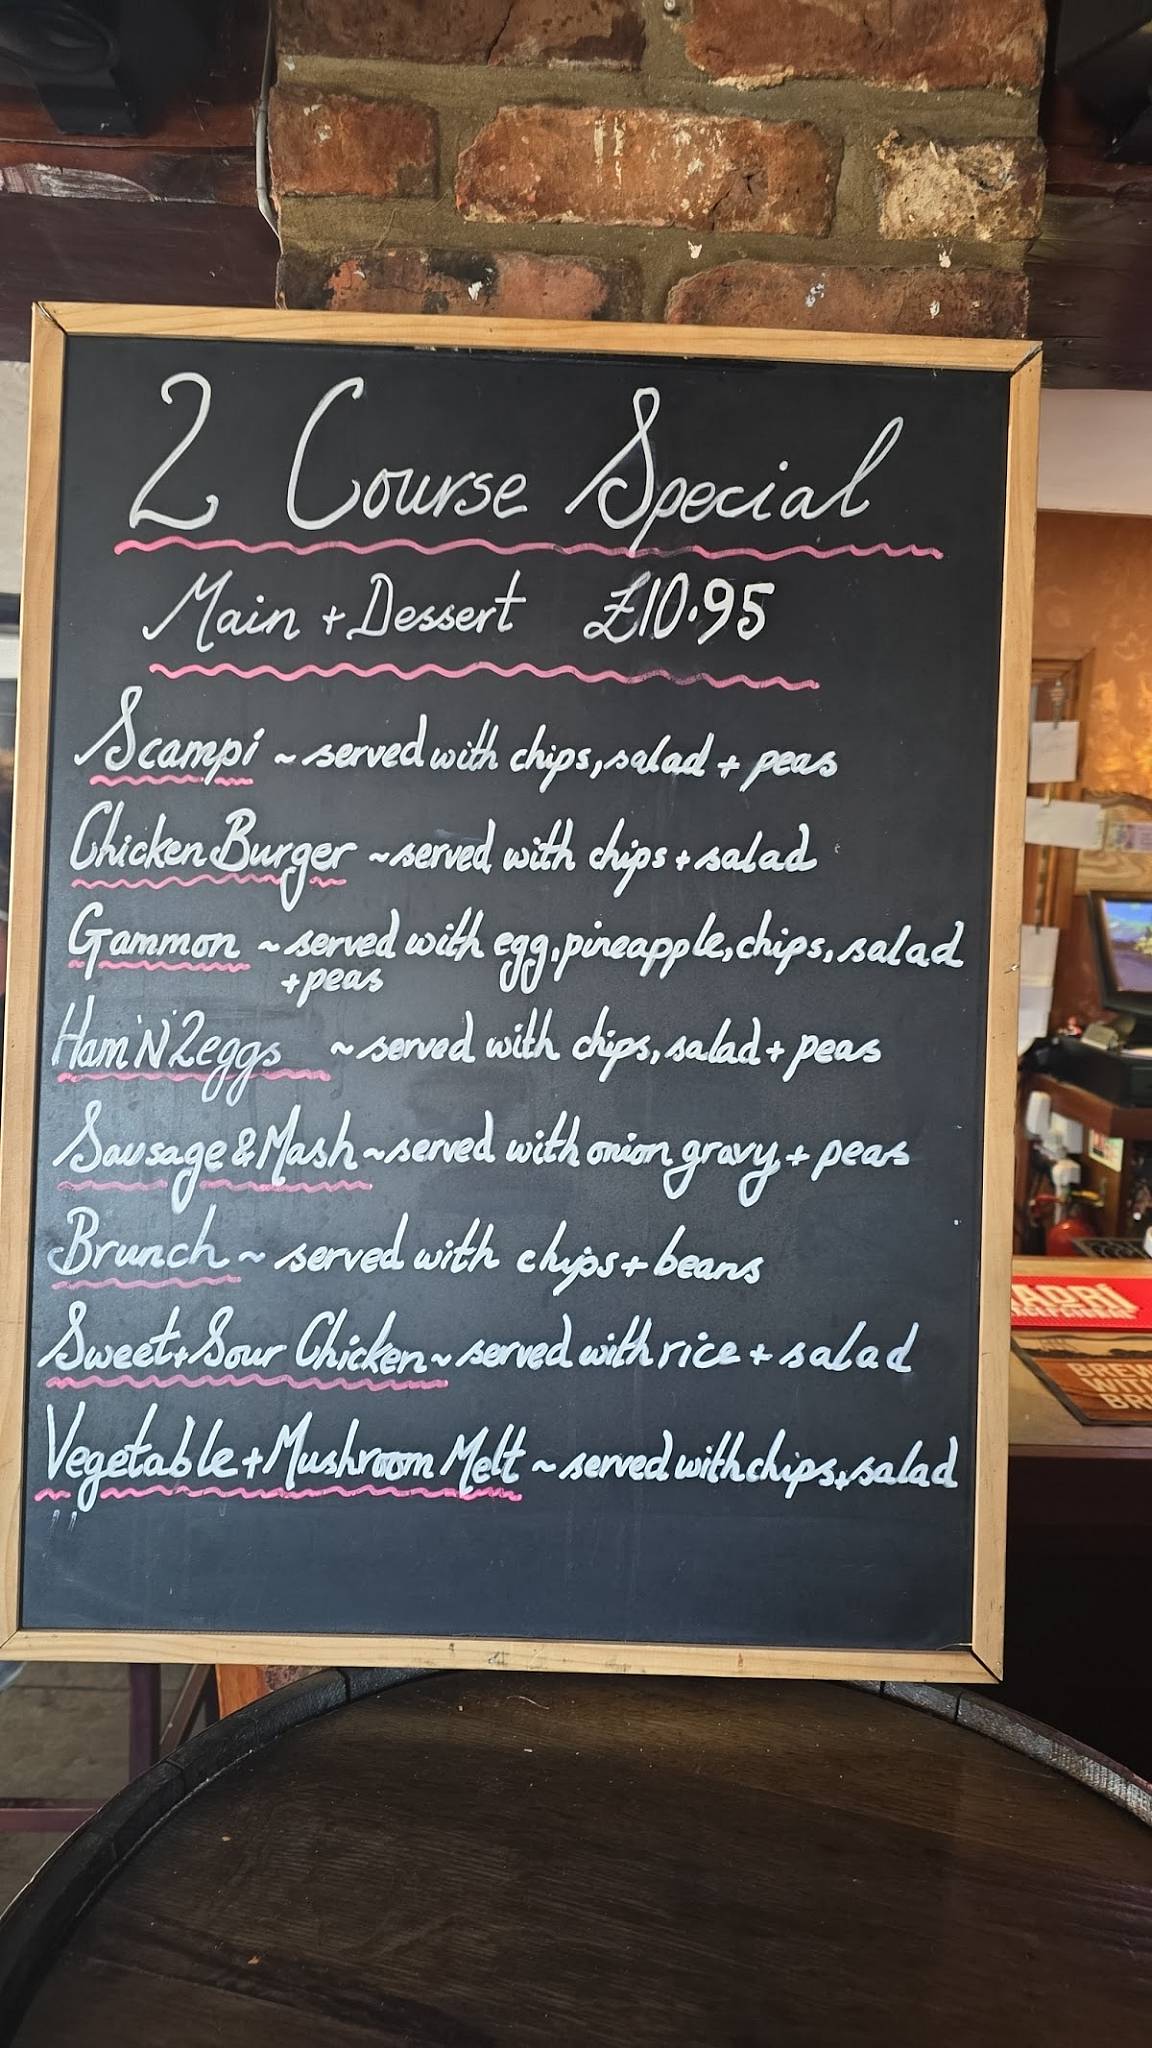 2 Course Special
Main + Dessert £10.95
Scampi ~ served with chips, salad + peas
Chicken Burger ~ served with chips + salad
Gammon ~ served with egg, pineapple, chips, salad
+ peas
Ham 'N' 2 eggs ~ served with chips, salad + peas
Sausage & Mash ~ served with onion gravy + peas
Brunch ~ served with chips + beans
Sweet + Sour Chicken ~ served with rice + salad
Vegetable + Mushroom Melt ~ served with chips + salad
BREW
WITH